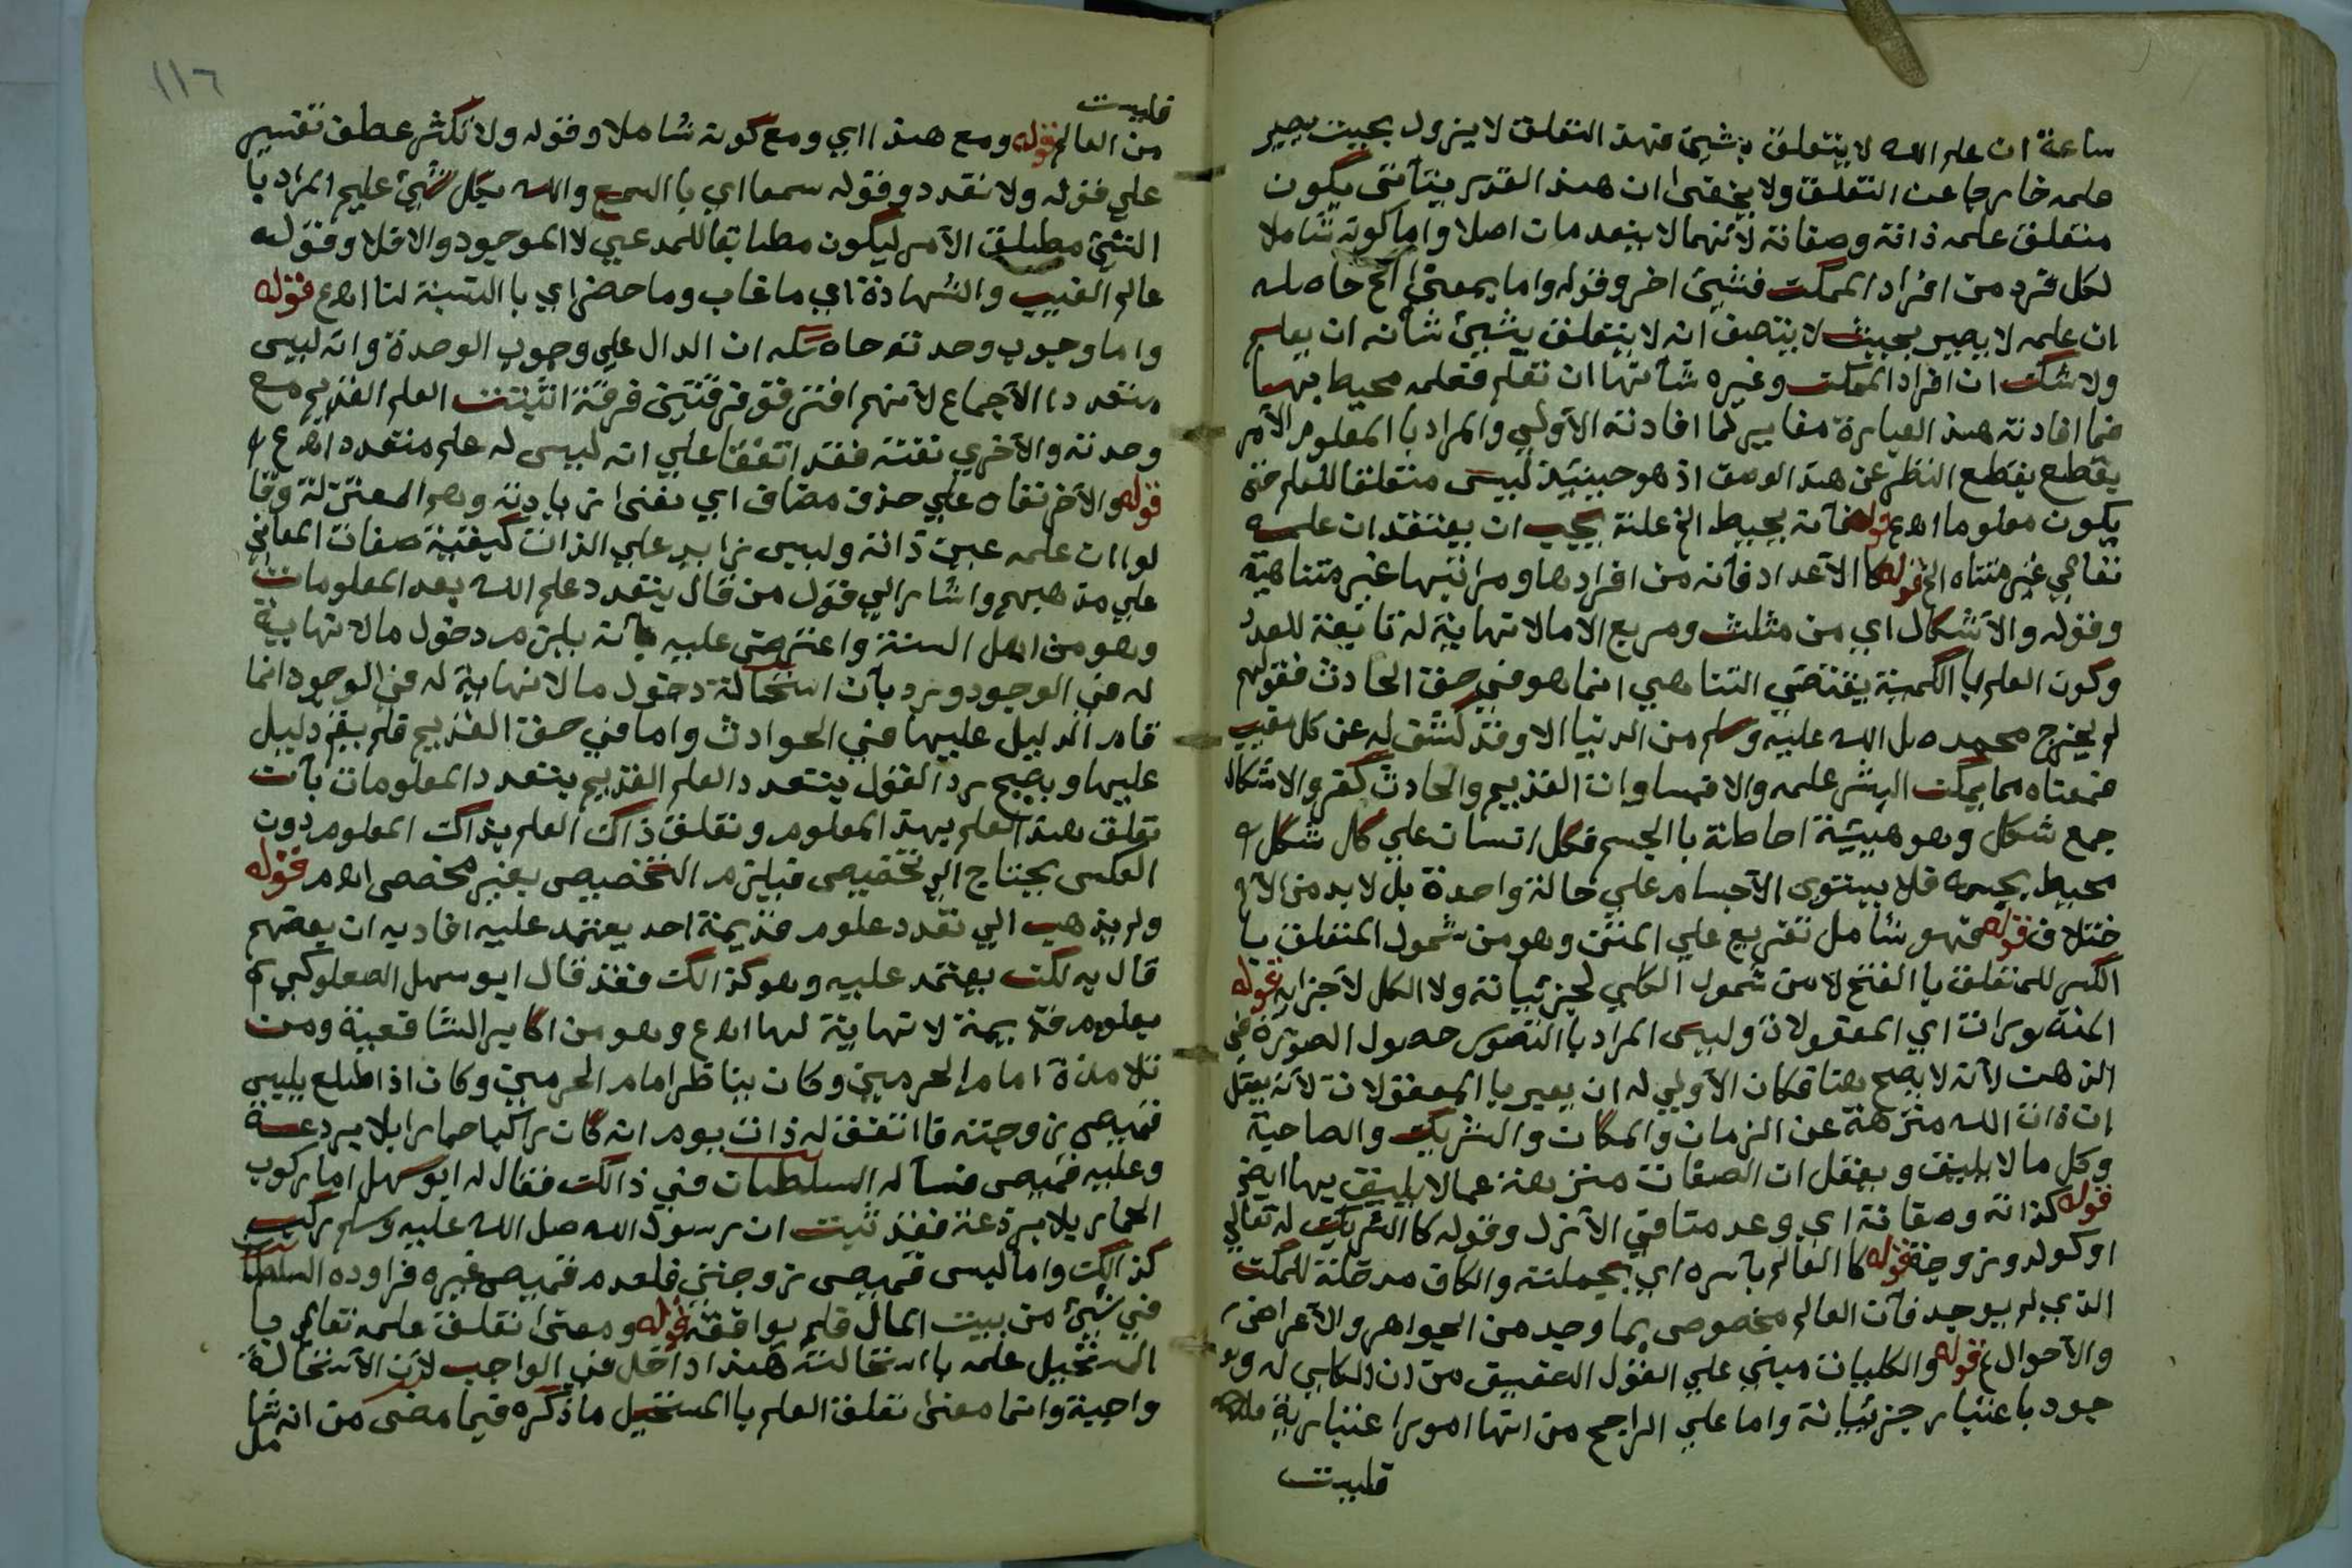 ساعة ان علم الله لا يتعلق بشيئ فهذ التعلق لا يزول بحيث يصير
علمه خارجا عن التعلق ولا يخفى ان هذ القدر يتأتى يكون
متعلق علمه ذاته وصفاته لأنهما لا ينعدمات اصلا واما كونه شاملا
لكل فرد من افراد الممكت فشيئ اخر وقوله واما بمعنى الخ حاصله
ان علمه لا يصير بحيث لا يتصف انه لا يتعلق بشيئ شأنه ان يعلم
ولا شك ان افراد الممكت وغيره شأنها ان تعلم فعلمه محيط بها
فما افادته هذ العبارة مغاير لما افادته الأولي والمراد با المعلوم الأمر
يقطع بقطع النظر عن هذ الوصف اذ هو حينئيذ ليس متعلقا للعلم حتى
يكون معلوما اهع قوله فأنه يحيط الخ علة يجب ان يعتقد ان علمه
تعالي غير متناه الخ قوله كا الأعداد فأنه من افرادها ومراتبها غير متناهية
وقوله والأشكال اي من مثلث ومربع الا مالا نهاية له تابعة للعدد
وكون العلم با الكمية يقتضي التناهي انما هو في حق الحادث فقولهم
لم يخرج محمد صل الله عليه وسلم من الدنيا الا وقد كشف له عن كل مغيب
فمعناه مما يمكت البشر علمه والا فمساوات القديم والحادث كفر والاشكال
جمع شكل وهو هيئة احاطة با الجسم فكل انسان علي كل شكل
محيط بجسمه فلا يستوى الأجسام علي حالة واحدة بل لا بد من الأ
ختلاف قوله فهو شامل تفريع علي المتن وهو من شمول المتعلق با
الكسر للمتعلق با الفتح لا من شمول الكلي لجزئياته ولا الكل لأجزايه قوله
المتصورات اي المعقولات وليس المراد با التصور حصول الصورة في
الذهن لأنه لا يصح هنا فكان الأولي له ان يعبر با المعقولات لأنه يعقل
ان ذات الله منزهة عن الزمان والمكان والشريك والصاحبة
وكل مالا يليق ويعقل ان الصفات منزهة عما لا يليق بها ايض
قوله كذاته وصفاته اي وعدمنا في الأزل وقوله كا الشريك له تعالي
او كولد وزوجة قوله كا العالم بأسره اي بجملته والكاف مدخلة للمكت
الذي لم يوجد فأن العالم مخصوص بما وجد من الجواهر والأعراض
والأحوال قوله والكليات مبني علي القول الضعيف من ان الكلي له و
جود با عتبار جزئياته واما علي الراجح من انها امورا عتبارية
فليست
١١٦
فليست
من العالم قوله ومع هذ اي ومع كونه شاملا وقوله ولا تكثر عطف تفسير
علي قوله ولا تعدد وقوله سمعا اي با السمع والله بكل شيئ عليم المراد با
الشيئ مطلق الأمر ليكون مطابقا للمدعي لا الموجود والا فلا وقوله
عالم الغيب والشهادة اي ما غاب وما حضر اي با النسبة لنا اهع قوله
واما وجوب وحدته حاصله ان الدال علي وجوب الوحدة وانه ليس
متعددا الأجماع لأنهم افترقو فرقتين فرقة اثبتت العلم القديم مع
وحدته والأخري نفته فقد اتفقا علي انه ليس له علم متعدد اهع
قوله والأخر نفاه علي حذف مضاف اي نفى زيادته وهم المعتزلة وقا
لوا ان علمه عين ذاته وليس زايد علي الذات كبقية صفات المعاني
علي مذهبهم واشار الي قول من قال يتعدد علم الله بعد المعلومات
وهو من اهل السنة واعترض عليه بأنه يلزم دخول مالا نهاية
له في الوجود ورد بأن استحالة دخول مالا نهاية له في الوجود انما
قام الدليل عليها في الحوادث واما في حق القديم فلم يقم دليل
عليها ويصح رد القول يتعدد العلم القديم يتعدد المعلومات بأن
تعلق هذ العلم بهذ المعلوم وتعلق ذاك العلم بذاكت المعلوم دون
العكس يحتاج الي تخصيص فيلزم التخصيص بغير مخصص اهم قوله
ولم يذهب الي تعدد علوم قديمة احد يعتمد عليه افاد به ان بعضهم
قال به لكت يعتمد عليه وهو كذالكت فقد قال ابو سهل الصعلوكي
بعلوم قديمة لا نهاية لها اهع وهو من اكابر الشافعية ومن
تلامذة امام الحرمين وكان يناظر امام الحرمين وكان اذا طلع يلبس
قميص زوجته فا اتفق له ذات يوم انه كان راكبا حمارا بلا بردعة
وعليه قميص فسأله السلطان في ذالكت فقال له ابو سهل اما ركوب
الحمار بلا بردعة فقد ثبت ان رسول الله صل الله عليه وسلم ركب
كذالكت واما لبس قميص زوجتي فلعدم قميص غيره فراوده السلطا
في شيئ من بيت المال فلم يوافقه قوله ومعنى تعلق علمه تعالي با
المستحيل علمه با استحالته هذ اداخل في الواجب لأن الأستحالة
واجبة وانما معنى تعلق العلم با المستحيل ما ذكره فيما مضى من انه شا
مل